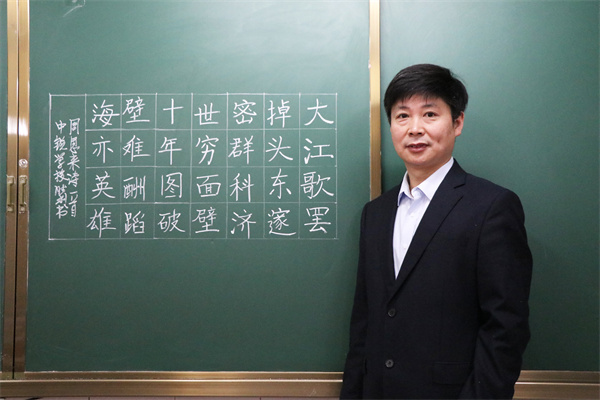 大江歌罢
掉头东邃
密群科济
世穷面壁
十年图破
壁难酬蹈
海亦英雄
周恩来诗一首
中锐学校